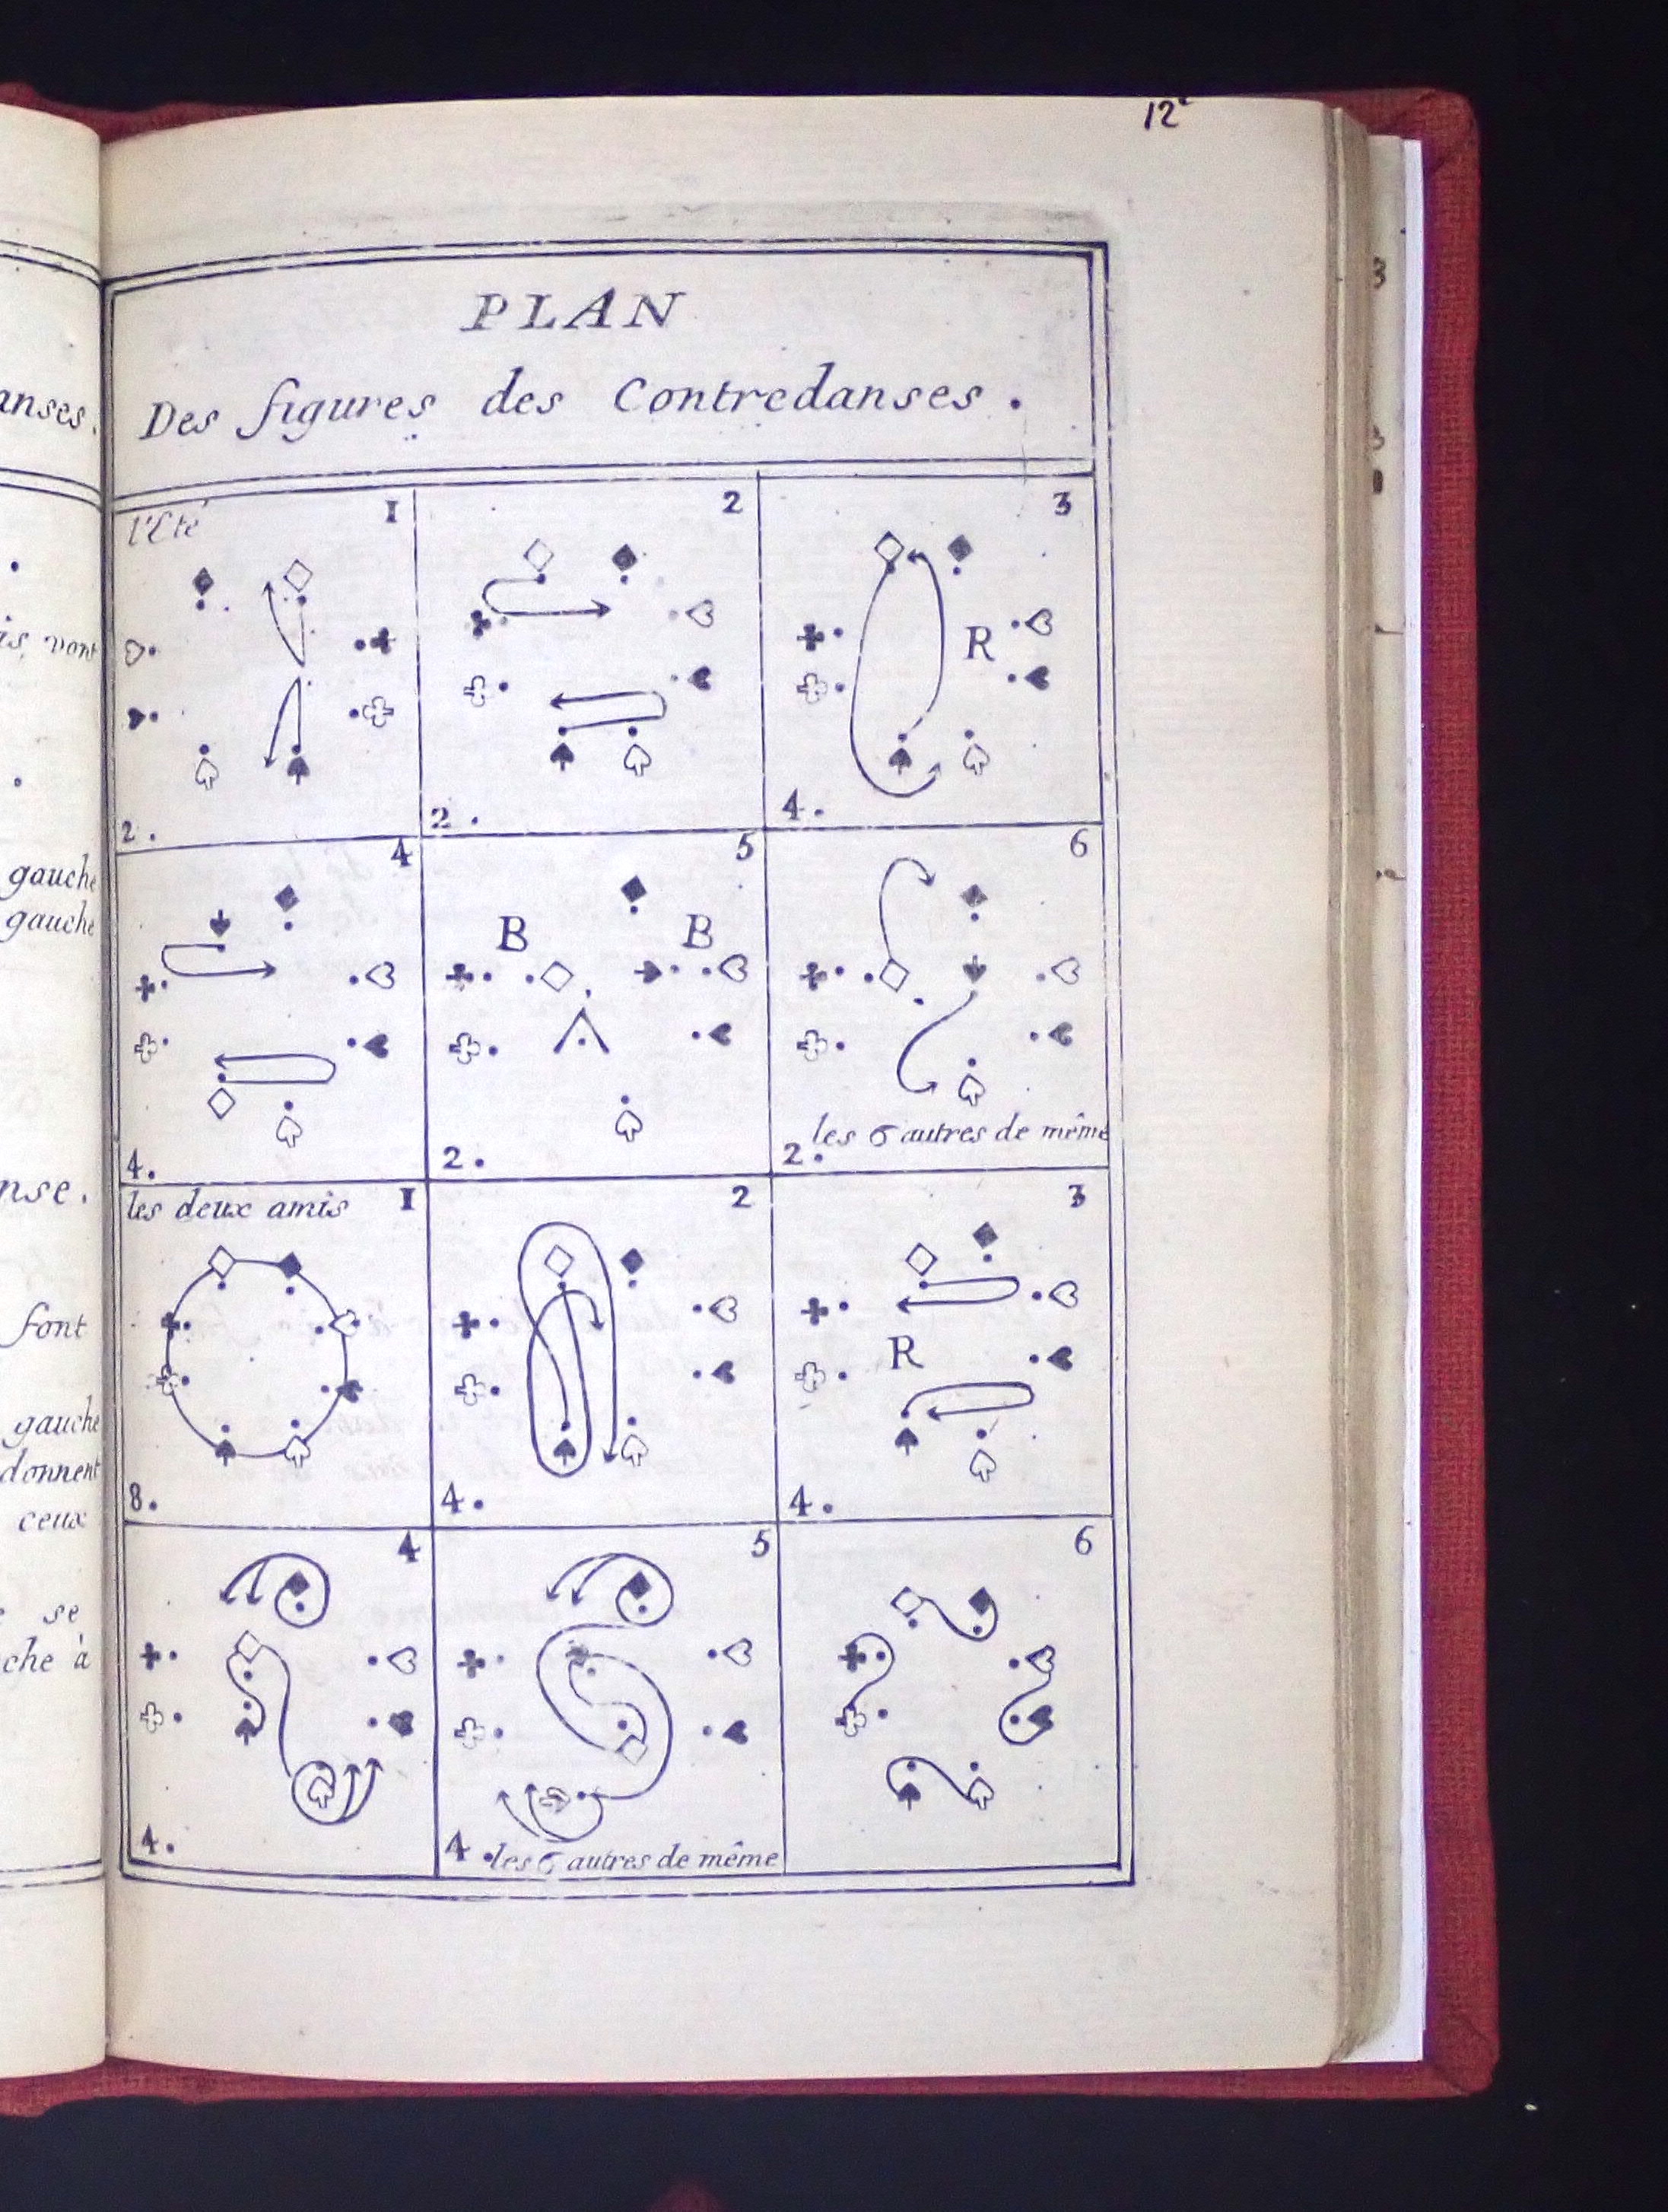 12
PLAN
Des figures des Contredanses.
l'Eté 1
2.
2
2.
3
R
4.
4
4.
5
B B
2.
6
les 6 autres de même
2.
les deux amis 1
8.
2
4.
3
R
4.
4
4.
5
4. les 6 autres de même
6
vont
gauche
gauche
font
gauche
donnent
ceux
se